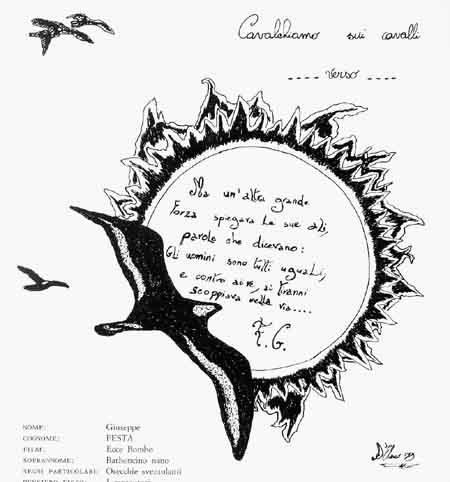 Cavalchiamo sui cavalli
---- verso ----
Ma un'altra grande
Forza spiegava le sue ali,
parole che dicevano:
Gli uomini sono tutti uguali,
e contro ai re, ai tiranni
scoppiava nella via....
F. G.
NOME: Giuseppe
COGNOME: FESTA
FILM: Ecce Bombo
SOPRANNOME: Barboncino nano
SEGNI PARTICOLARI: Orecchie sventolanti